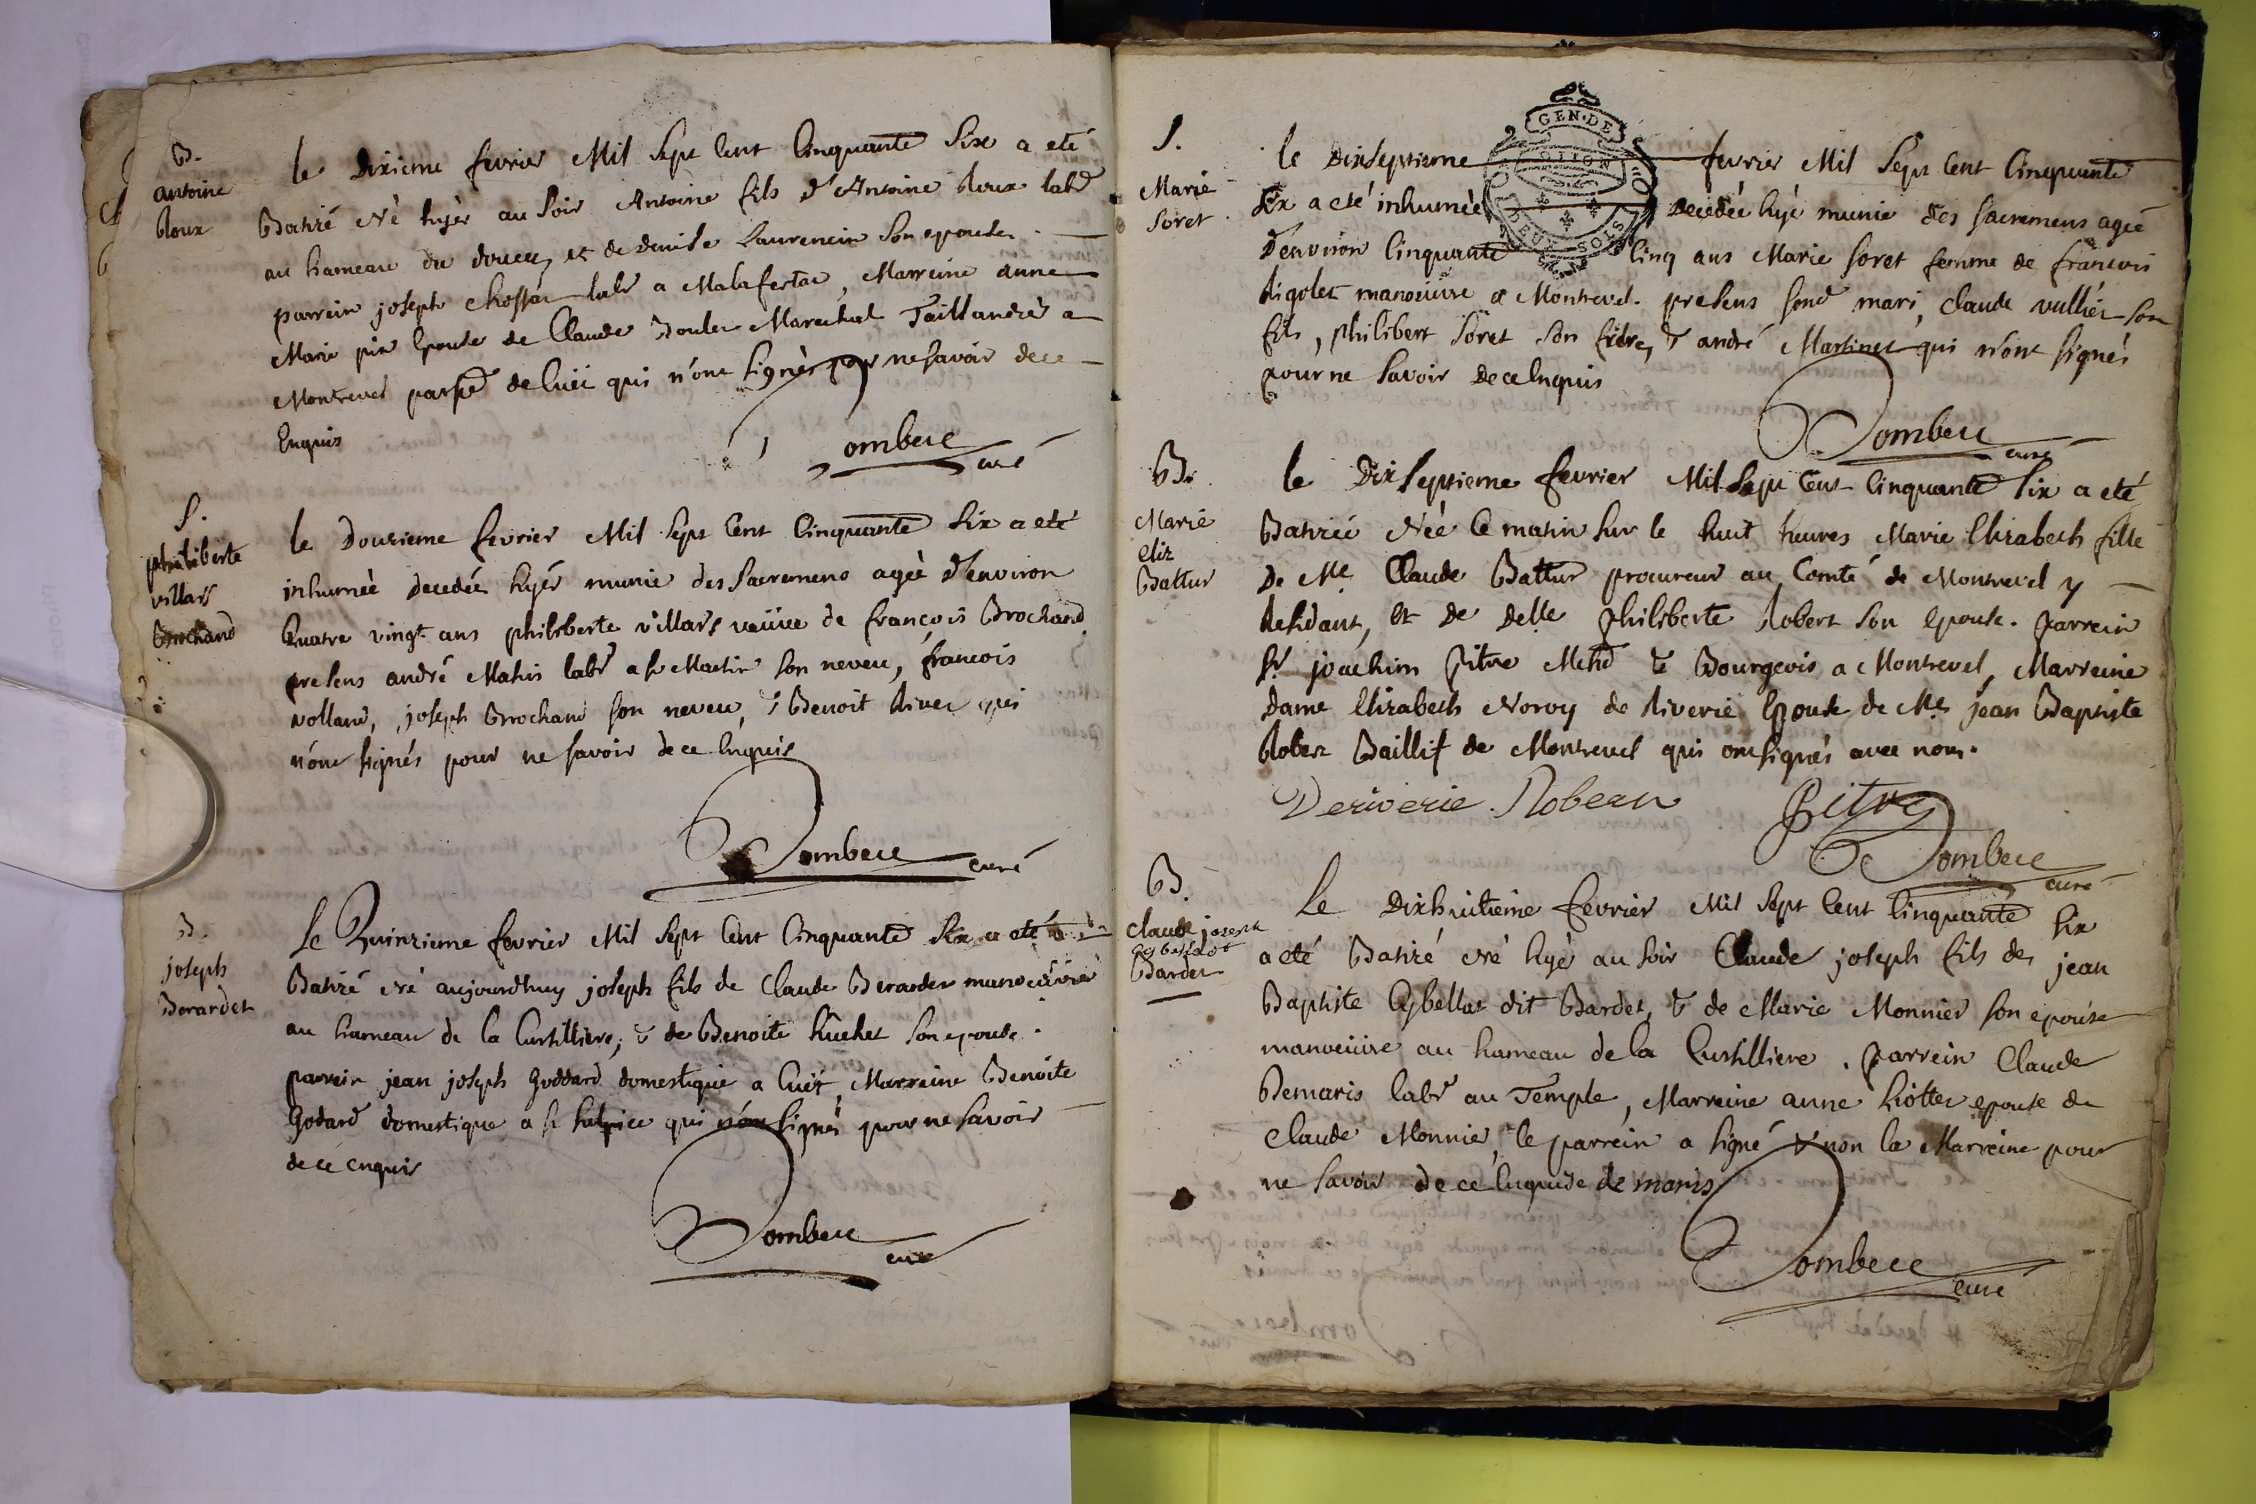 B.
antoine
Roux
le Dixieme fevrier Mil Sept Cent Cinquante Six a eté
Batizé Né hyer au Soir Antoine fils d'Antoine Roux labr
au hameau du et de denise Laurencin Son epouse.
parrein joseph labr a Malafretaz, Marreine anne
Marie Epouse de Claude Marechal Taillandier a
Montrevel de Cuët qui n'ont Signés pour ne Savoir de ce
Enquis
Dombece
curé
S.
philiberte
villars
Brochand
le Douzieme fevrier Mil Sept Cent Cinquante Six a eté
inhumée Decedée hyér munie des Sacremens agée d'environ
Quatre vingt ans philiberte villars veuve de françois Brochand
presens andré Mathis labr a St Martin Son neveu, francois
volland, joseph Brochand Son neveu, & Benoit River qui
n'ont Signés pour ne Savoir de ce Enquis
Dombece
curé
B.
joseph
Berardet
Le Quinzieme fevrier Mil Sept Cent Cinquante Six a eté
Batizé né aujourdhuy joseph fils de Claude Berardet manoeuvre
au hameau de la Curtilliere, & de Benoite Son epouse.
parrein jean joseph Goddard domestique a Cuët, Marreine Benoite
Godard domestique a St Sulpice qui n'ont Signés pour ne Savoir
de ce enquis
Dombece
curé
S.
Marie
Soret
GEN. DE
DIION
DEUX SOLS
le Dixseptieme fevrier Mil Sept Cent Cinquante
Six a eté inhumée Decedée hyé munie des Sacremens agée
d'environ Cinquante Cinq ans Marie Soret femme de francois
Rigolet manoeuvre a Montrevel. presens Sond mari, Claude vullier Son
fils, philibert Soret Son frere, & andré Martinet qui n'ont Signés
pour ne Savoir de ce Enquis
Dombece
curé
B.
Marie
eliz
Battur
le Dix Septieme fevrier Mil Sept Cent Cinquante Six a eté
Batizée Née Ce matin Sur le huit heures Marie Elizabeth fille
De Me Claude Battur procureur au Comté de Montrevel y
Residant, et de Delle Philiberte Robert Son Epouse. parrein
Sr joachim Pitre Mchd & Bourgeois a Montrevel, Marreine
Dame Elizabeth de Riverie Epouse de Me jean Baptiste
Robert Baillif de Montrevel qui ont Signés avec nous.
Deriverie Robert
Pitre
Dombece
curé
B.
Claude joseph
Bardet
Le Dixhuitieme fevrier Mil Sept Cent Cinquante Six
a eté Batizé né hyé au Soir Claude joseph fils de jean
Baptiste dit Bardet, & de Marie Monnier Son epouse
manoeuvre au hameau de la Curtilliere. parrein Claude
Demaris labr au Temple, Marreine anne epouse de
Claude Monnier, le parrein a Signé & non la Marreine pour
ne Savoir de ce Enquise de maris
Dombece
curé